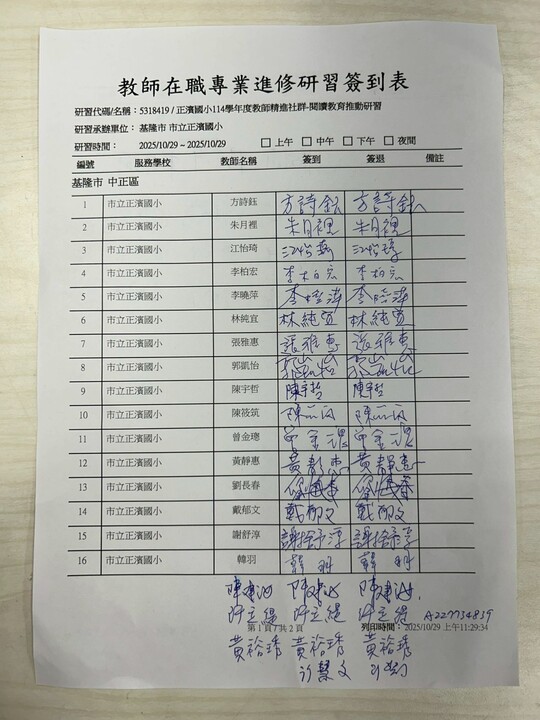 教師在職專業進修研習簽到表
研習代碼/名稱：5318419 / 正濱國小114學年度教師精進社群-閱讀教育推動研習
研習承辦單位： 基隆市 市立正濱國小
研習時間： 2025/10/29 ~ 2025/10/29 □ 上午 □ 中午 □ 下午 □ 夜間
編號 服務學校 教師名稱 簽到 簽退 備註
基隆市 中正區
1 市立正濱國小 方詩鈺 方詩鈺 方詩鈺
2 市立正濱國小 朱月裡 朱月裡 朱月裡
3 市立正濱國小 江怡琦 江怡琦 江怡琦
4 市立正濱國小 李柏宏 李柏宏 李柏宏
5 市立正濱國小 李曉萍 李曉萍 李曉萍
6 市立正濱國小 林純宜 林純宜 林純宜
7 市立正濱國小 張雅惠 張雅惠 張雅惠
8 市立正濱國小 郭凱怡 郭凱怡 郭凱怡
9 市立正濱國小 陳宇哲 陳宇哲 陳宇哲
10 市立正濱國小 陳筱筑 陳 陳
11 市立正濱國小 曾金璁 曾金璁 曾金璁
12 市立正濱國小 黃靜惠 黃靜惠 黃靜惠
13 市立正濱國小 劉長春
14 市立正濱國小 戴郁文 戴郁文 戴郁文
15 市立正濱國小 謝舒淳 謝舒淳 謝舒淳
16 市立正濱國小 韓羽 韓羽 韓羽
陳 陳 陳
許立緹 許立緹 許立緹 A227734839
第 1 頁 / 共 2 頁 列印時間： 2025/10/29 上午11:29:34
黃裕琇 黃裕琇 黃裕琇